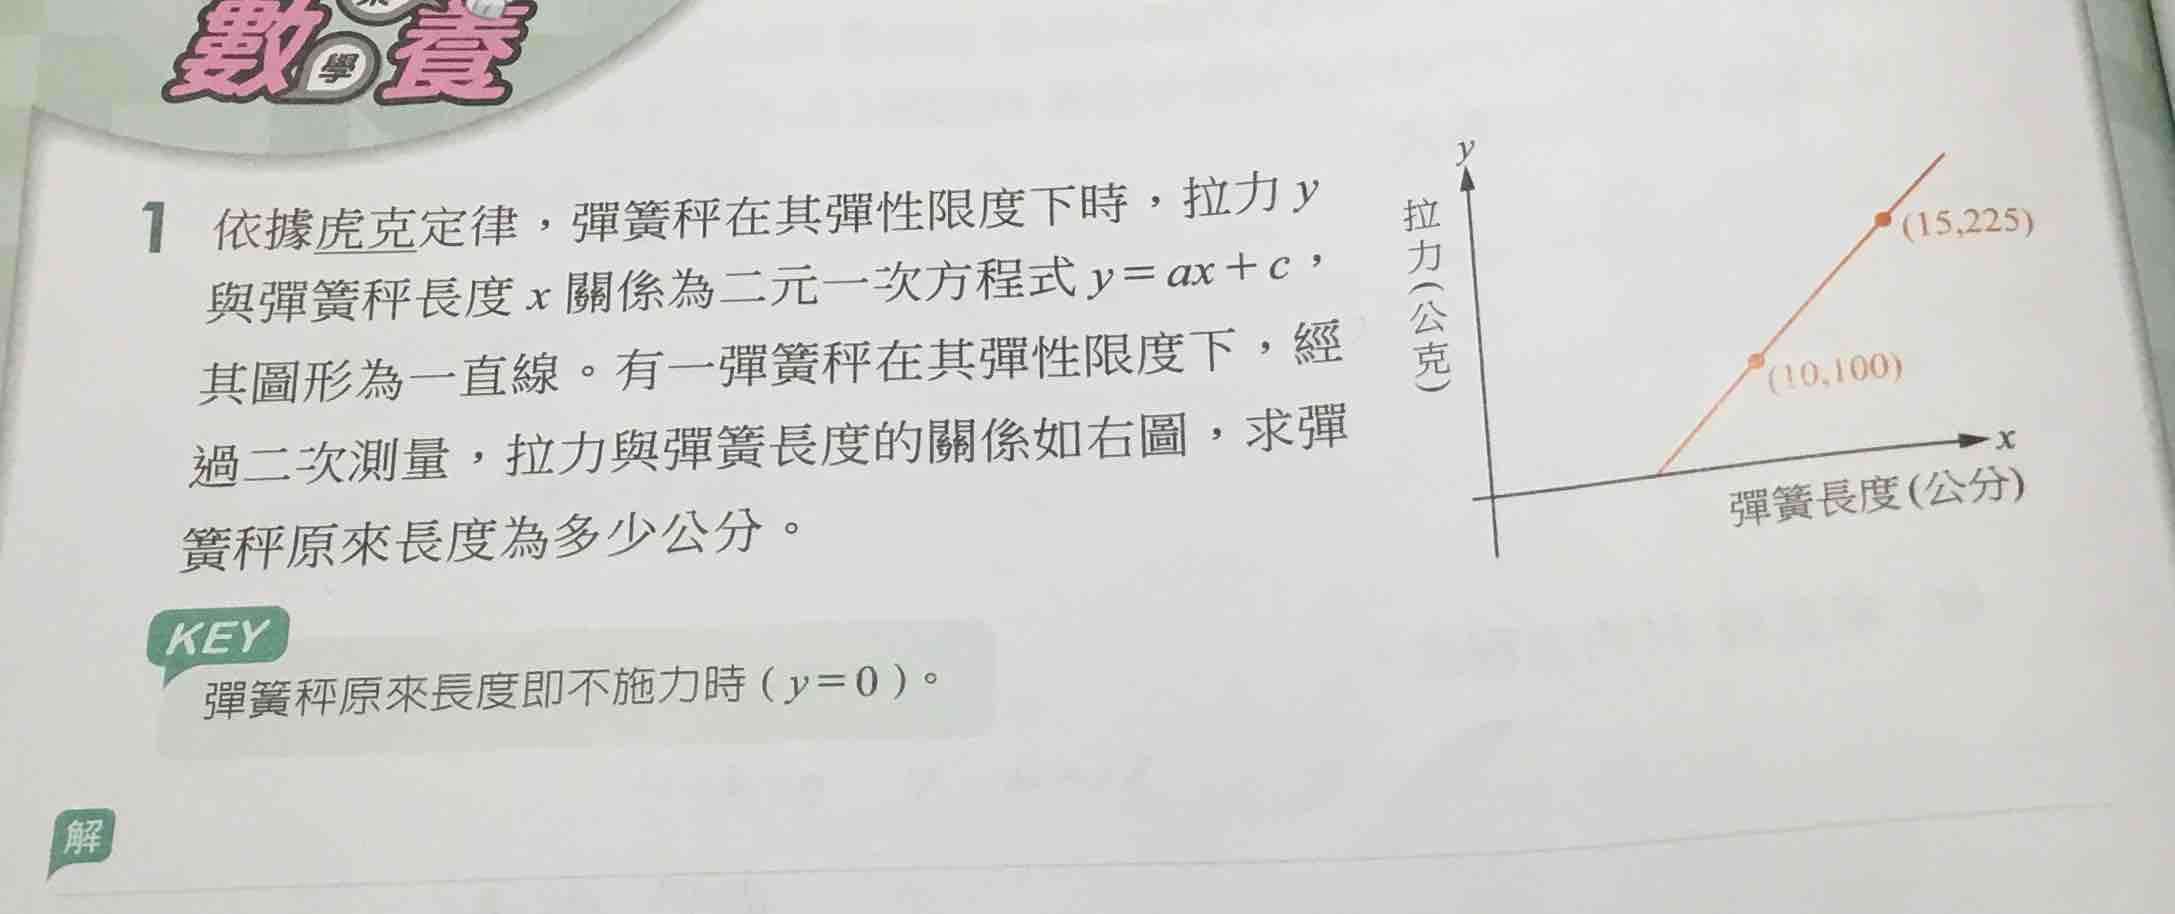 數學養
1 依據虎克定律，彈簧秤在其彈性限度下時，拉力 y
與彈簧秤長度 x 關係為二元一次方程式 y=ax+c，
其圖形為一直線。有一彈簧秤在其彈性限度下，經
過二次測量，拉力與彈簧長度的關係如右圖，求彈
簧秤原來長度為多少公分。
y
拉力(公克)
(15,225)
(10,100)
x
彈簧長度(公分)
KEY
彈簧秤原來長度即不施力時（y=0）。
解